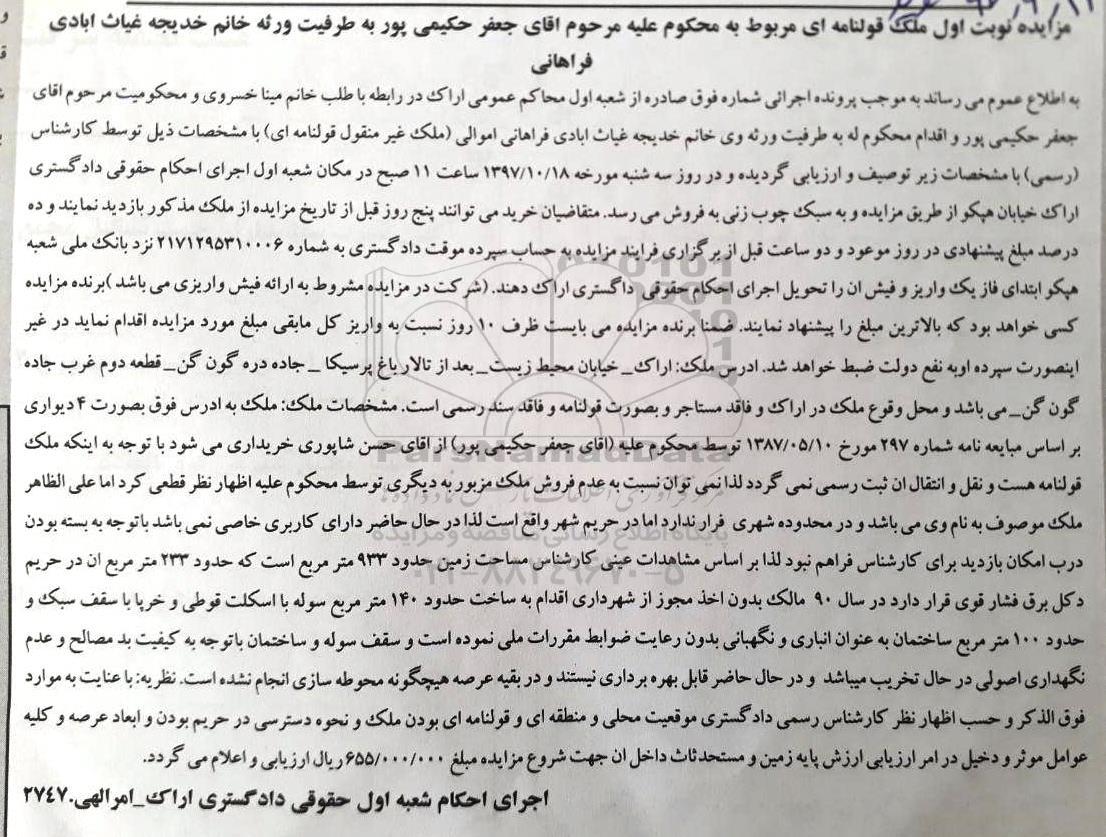 مزایده نوبت اول ملک قولنامه ای مربوط به محکوم علیه مرحوم اقای جعفر حکیمی پور به طرفیت ورثه خانم خدیجه غیاث ابادی
فراهانی
به اطلاع عموم می رساند به موجب پرونده اجرائی شماره فوق صادره از شعبه اول محاکم عمومی اراک در رابطه با طلب خانم مینا خسروی و محکومیت مرحوم اقای
جعفر حکیمی پور و اقدام محکوم له به طرفیت ورثه وی خانم خدیجه غیاث ابادی فراهانی اموالی (ملک غیر منقول قولنامه ای) با مشخصات ذیل توسط کارشناس
(رسمی) با مشخصات زیر توصیف و ارزیابی گردیده و در روز سه شنبه مورخه ۱۳۹۷/۱۰/۱۸ ساعت ۱۱ صبح در مکان شعبه اول اجرای احکام حقوقی دادگستری
اراک خیابان هپکو از طریق مزایده و به سبک چوب زنی به فروش می رسد. متقاضیان خرید می توانند پنج روز قبل از تاریخ مزایده از ملک مذکور بازدید نمایند و ده
درصد مبلغ پیشنهادی در روز موعود و دو ساعت قبل از برگزاری فرایند مزایده به حساب سپرده موقت دادگستری به شماره ۲۱۷۱۲۹۵۳۱۰۰۰۶ نزد بانک ملی شعبه
هپکو ابتدای فاز یک واریز و فیش ان را تحویل اجرای احکام حقوقی داگستری اراک دهند. (شرکت در مزایده مشروط به ارائه فیش واریزی می باشد )برنده مزایده
کسی خواهد بود که بالاترین مبلغ را پیشنهاد نمایند. ضمنا برنده مزایده می بایست ظرف ۱۰ روز نسبت به واریز کل مابقی مبلغ مورد مزایده اقدام نماید در غیر
اینصورت سپرده اوبه نفع دولت ضبط خواهد شد. ادرس ملک: اراک_ خیابان محیط زیست_ بعد از تالار باغ پرسیکا _ جاده دره گون گن_ قطعه دوم غرب جاده
گون گن_ می باشد و محل وقوع ملک در اراک و فاقد مستاجر و بصورت قولنامه و فاقد سند رسمی است. مشخصات ملک: ملک به ادرس فوق بصورت ۴ دیواری
بر اساس مبایعه نامه شماره ۲۹۷ مورخ ۱۳۸۷/۰۵/۱۰ توسط محکوم علیه (اقای جعفر حکیمی پور) از اقای حسن شاپوری خریداری می شود با توجه به اینکه ملک
ParsNamadData
قولنامه هست و نقل و انتقال ان ثبت رسمی نمی گردد لذا نمی توان نسبت به عدم فروش ملک مزبور به دیگری توسط محکوم علیه اظهار نظر قطعی کرد اما علی الظاهر
ملک موصوف به نام وی می باشد و در محدوده شهری  قرار ندارد اما در حریم شهر واقع است لذا در حال حاضر دارای کاربری خاصی نمی باشد باتوجه به بسته بودن
پایگاه اطلاع رسانی مناقصه و مزایده
درب امکان بازدید برای کارشناس فراهم نبود لذا بر اساس مشاهدات عینی کارشناس مساحت زمین حدود ۹۳۳ متر مربع است که حدود ۲۳۳ متر مربع ان در حریم
۰۲۱-۸۸۳۴۹۶۷۰-۵
دکل برق فشار قوی قرار دارد در سال ۹۰  مالک بدون اخذ مجوز از شهرداری اقدام به ساخت حدود ۱۴۰ متر مربع سوله با اسکلت قوطی و خرپا با سقف سبک و
حدود ۱۰۰ متر مربع ساختمان به عنوان انباری و نگهبانی بدون رعایت ضوابط مقررات ملی نموده است و سقف سوله و ساختمان باتوجه به کیفیت بد مصالح و عدم
نگهداری اصولی در حال تخریب میباشد  و در حال حاضر قابل بهره برداری نیستند و در بقیه عرصه هیچگونه محوطه سازی انجام نشده است. نظریه: با عنایت به موارد
فوق الذکر و حسب اظهار نظر کارشناس رسمی دادگستری موقعیت محلی و منطقه ای و قولنامه ای بودن ملک و نحوه دسترسی در حریم بودن و ابعاد عرصه و کلیه
عوامل موثر و دخیل در امر ارزیابی ارزش پایه زمین و مستحدثات داخل ان جهت شروع مزایده مبلغ ۶۵۵/۰۰۰/۰۰۰ ریال ارزیابی و اعلام می گردد.
اجرای احکام شعبه اول حقوقی دادگستری اراک_امرالهی.۲۷۴۷